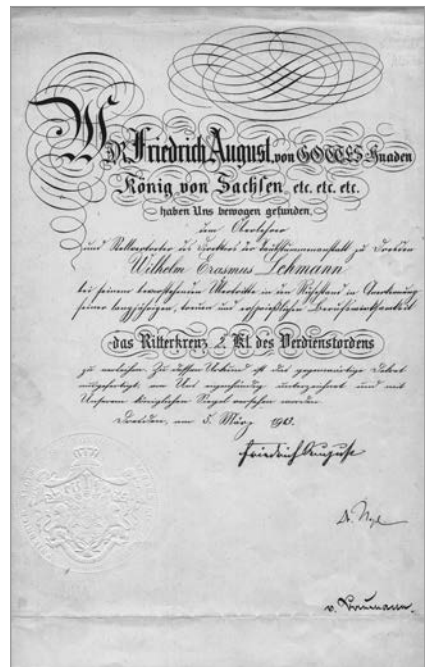 WIR Friedrich August, von GOTTES Gnaden
König von Sachsen etc. etc. etc.
haben Uns bewogen gefunden,
dem Oberlehrer
und Stellvertreter des Direktors der Taubstummenanstalt zu Dresden
Wilhelm Erasmus Lehmann
bei seinem bevorstehenden Übertritte in den Ruhestand in Anerkennung
seiner langjährigen, treuen und ersprießlichen Berufswirksamkeit
das Ritterkreuz 2. Kl. des Verdienstordens
zu verleihen. Zu dessen Urkund ist das gegenwärtige Dekret
ausgefertigt, von Uns eigenhändig unterzeichnet und mit
Unserem königlichen Siegel versehen worden.
Dresden, am 5. März
Friedrich August
Dr.
v.